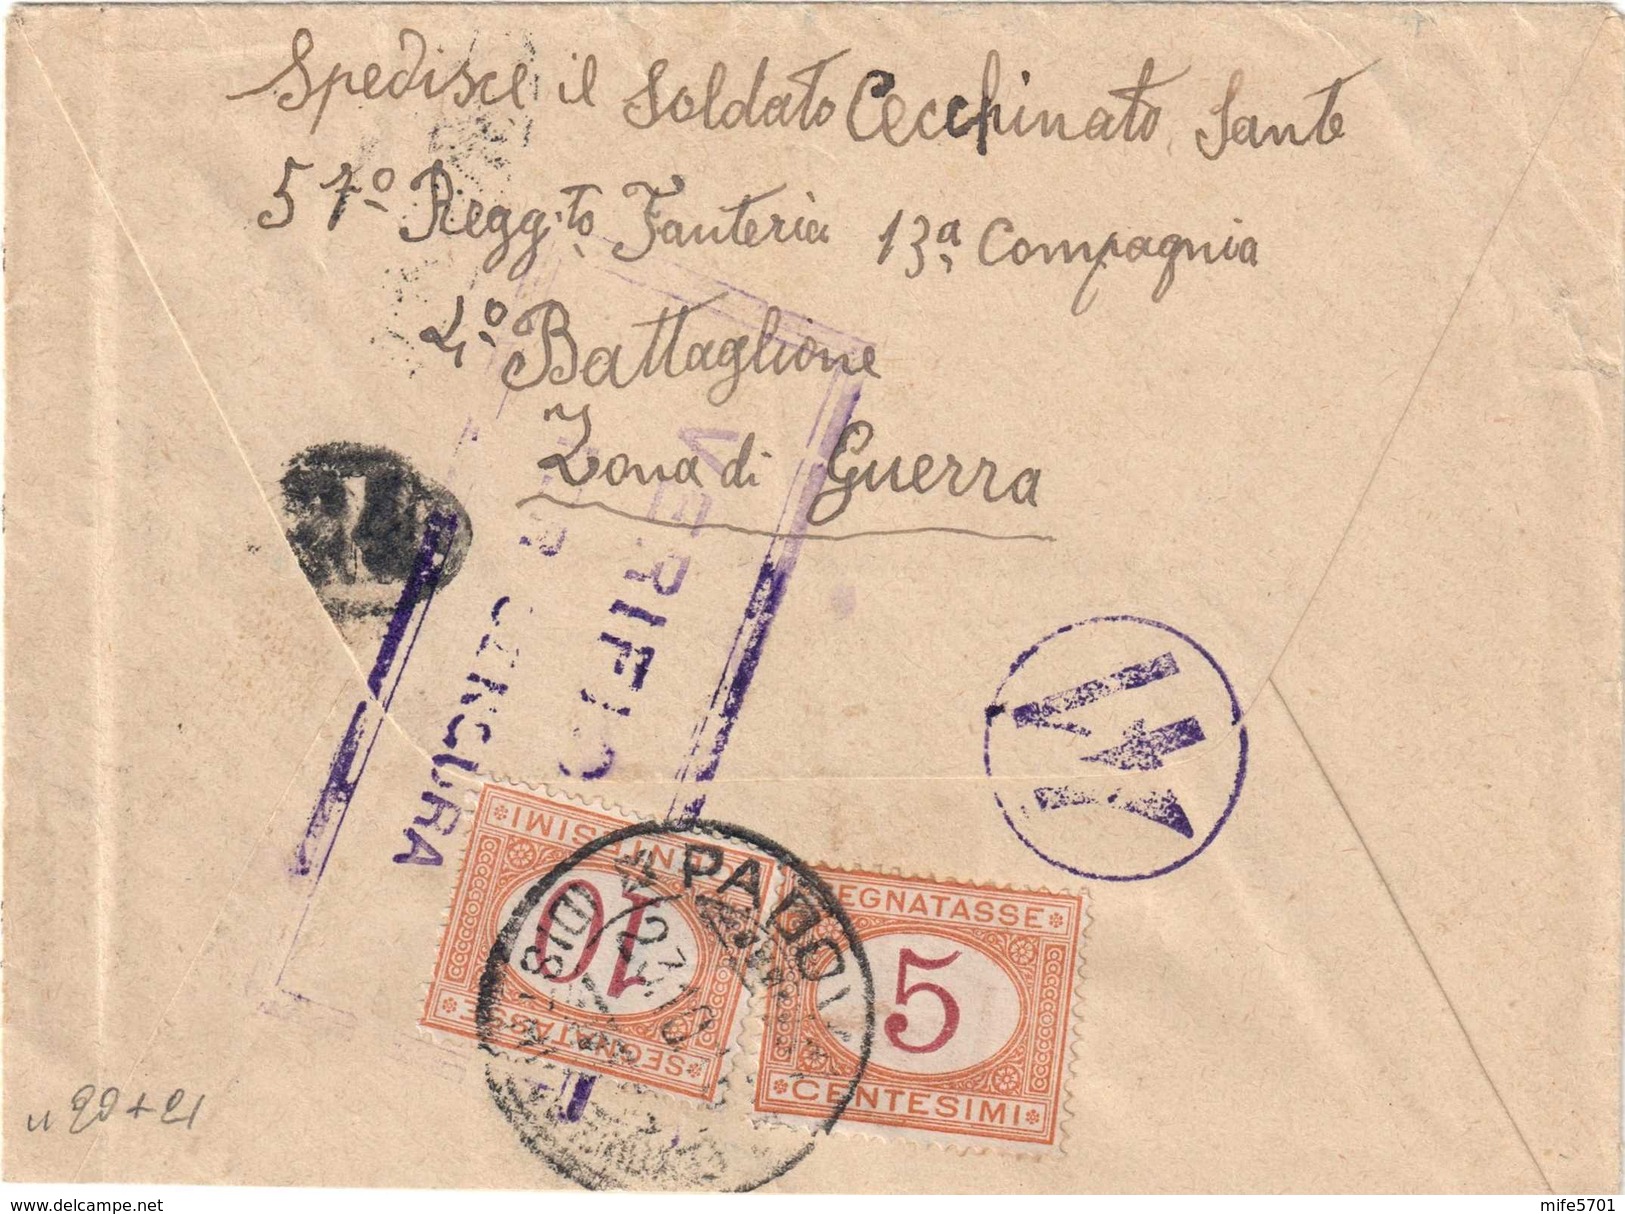 Spedisce il Soldato Cecchinato Sante
57º Regg.to Fanteria 13ª Compagnia
4º Battaglione
Zona di Guerra
VERIFICATO
PER CENSURA
CENTESIMI
10
SEGNATASSE
PADOVA
SEGNATASSE
5
CENTESIMI
n 20+21
mife5701